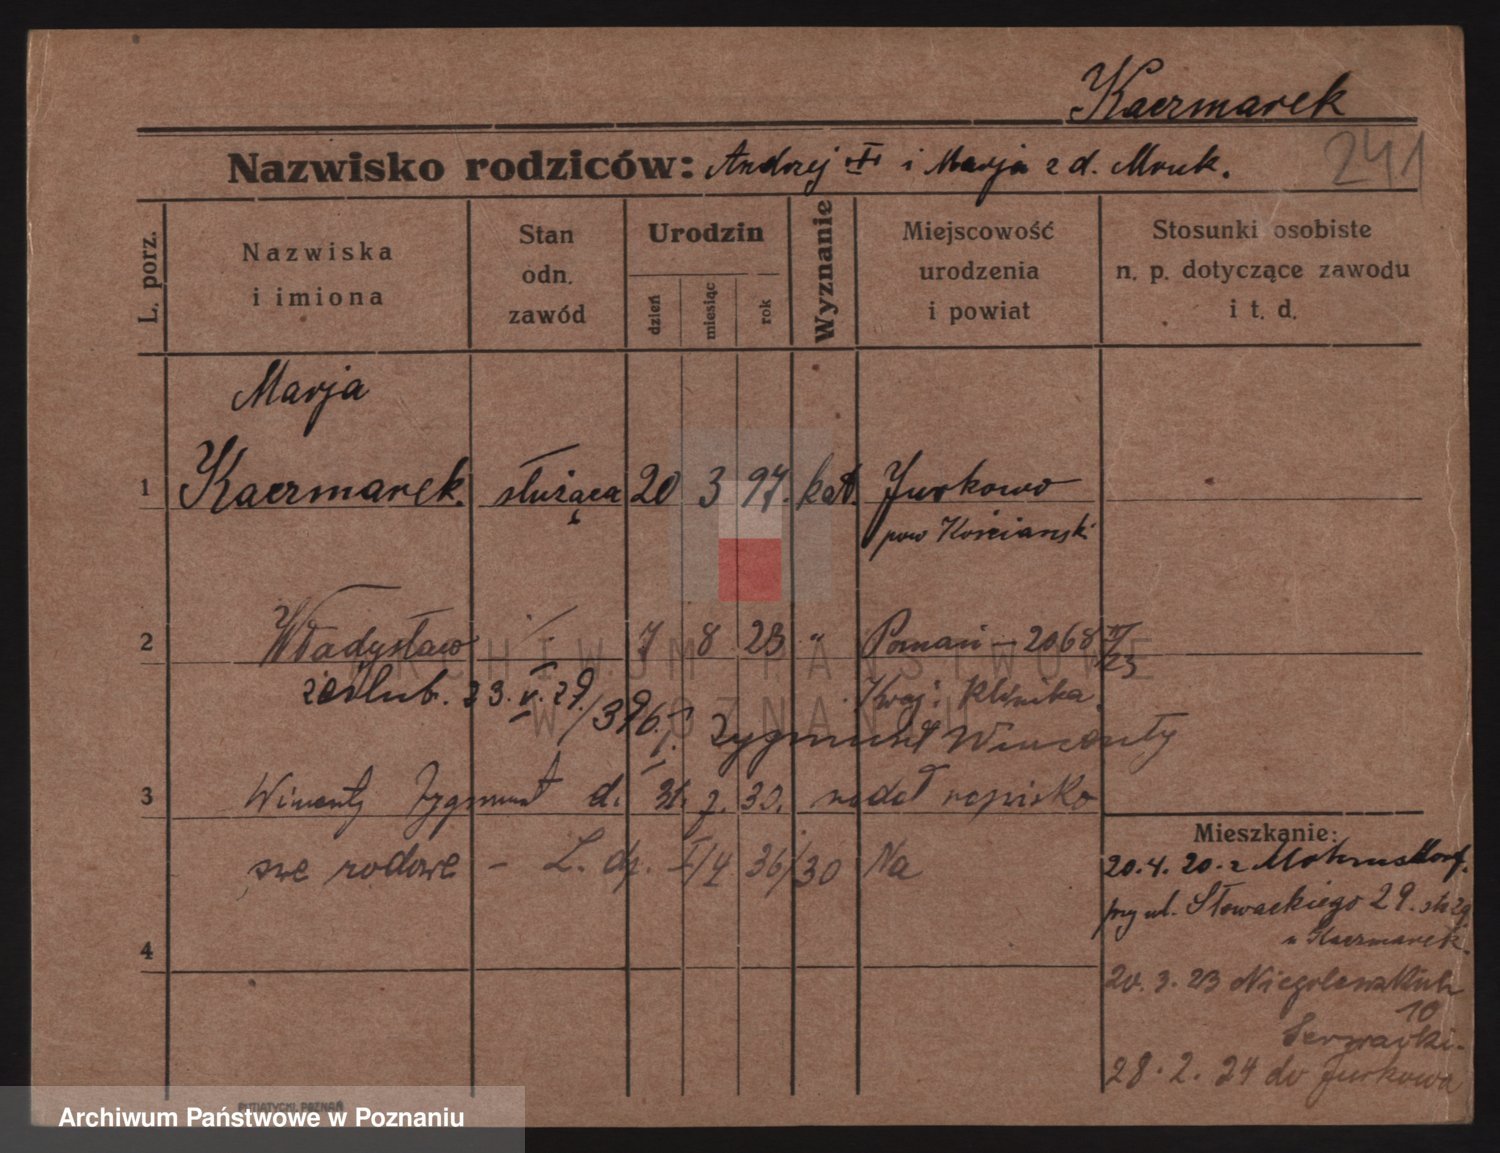 Kaczmarek
241
Nazwisko rodziców: Andrzej i Marja z d. Mruk.
L. porz.
Nazwiska
i imiona
Stan
odn.
zawód
Urodzin
dzień
miesiąc
rok
Wyznanie
Miejscowość
urodzenia
i powiat
Stosunki osobiste
n. p. dotyczące zawodu
i t. d.
Marja
1 Kaczmarek. służąca 20 3 97. kat. Jurkowo
pow Kościański
2 Władysław 7 8 23 " Poznań - 2068 II/23
ARCHIWUM PAŃSTWOWE
W POZNANIU
ześlub. 23. V. 29/396. Kraj: Klinika.
I. Zygmunt Wincenty
3 Wincenty Zygmunt d. 31. 7. 30. nadał nazwisko
swe rodowe - L. dz. I/4 36/30 Na
4
Mieszkanie:
20.4.20. z
przy ul. Słowackiego 29.
u Kaczmarek.
20.3.23 Niegolewskich
10
28.2.24 do Jurkowa
Archiwum Państwowe w Poznaniu